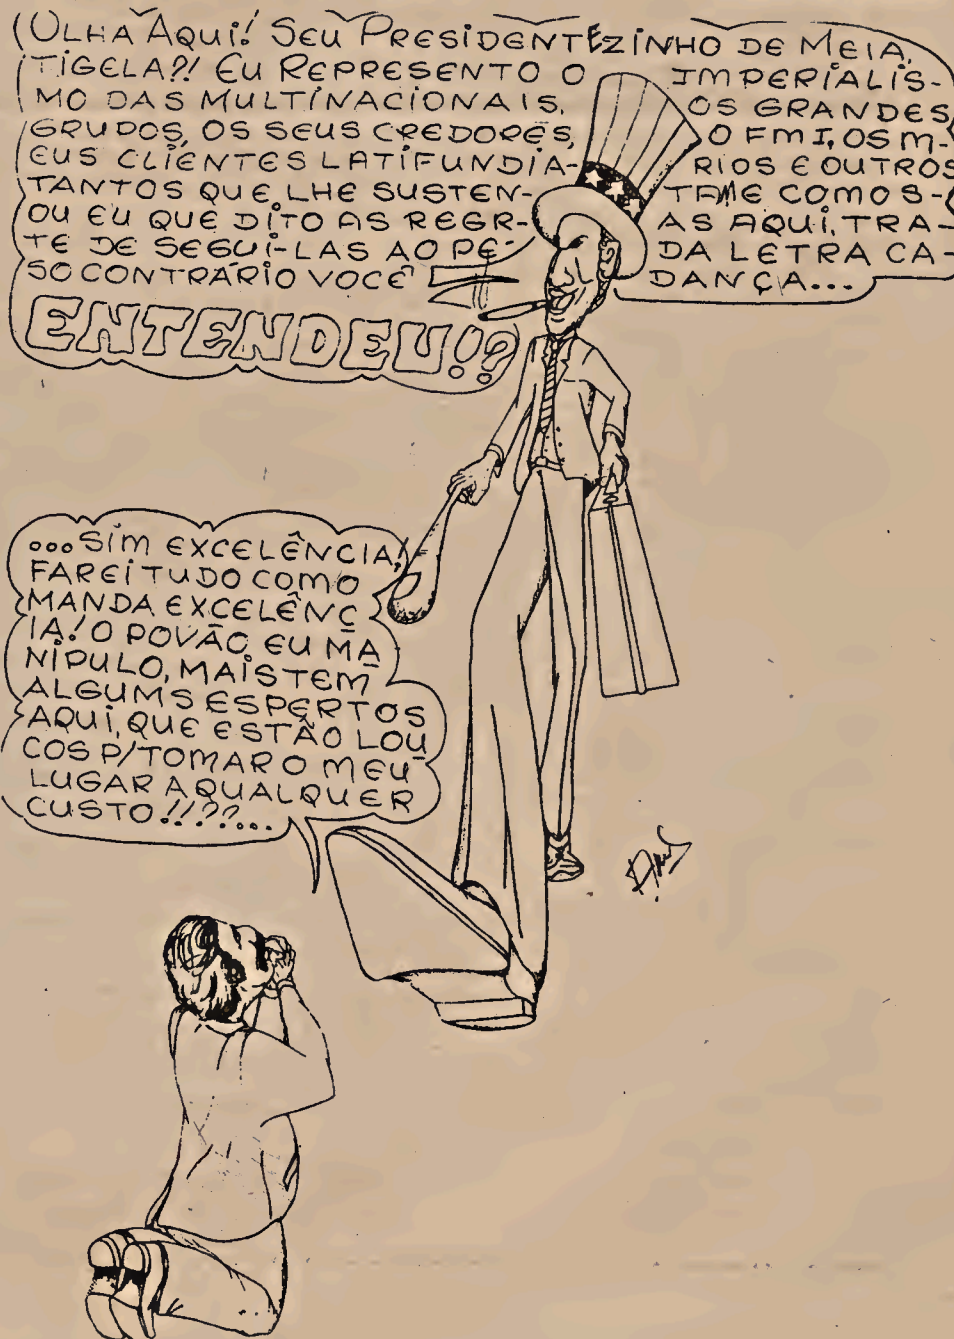 OLHA AQUI! SEU PRESIDENTEZINHO DE MEIA
TIGELA?! EU REPRESENTO O IMPERIALIS-
MO DAS MULTINACIONAIS, OS GRANDES
GRUPOS, OS SEUS CREDORES, O FMI, OS M-
EUS CLIENTES LATIFUNDIÁ- RIOS E OUTROS
TANTOS QUE LHE SUSTEN- TAM E COMO S-
OU EU QUE DITO AS REGR- AS AQUI, TRA-
TE DE SEGUÍ-LAS AO PÉ DA LETRA CA-
SO CONTRÁRIO VOCÊ DANÇA...
ENTENDEU!?
...SIM EXCELÊNCIA!
FAREI TUDO COMO
MANDA EXCELÊNC
IA! O POVÃO EU MA
NIPULO, MAIS TEM
ALGUMS ESPERTOS
AQUI, QUE ESTÃO LOU
COS P/ TOMAR O MEU
LUGAR A QUALQUER
CUSTO!!??...